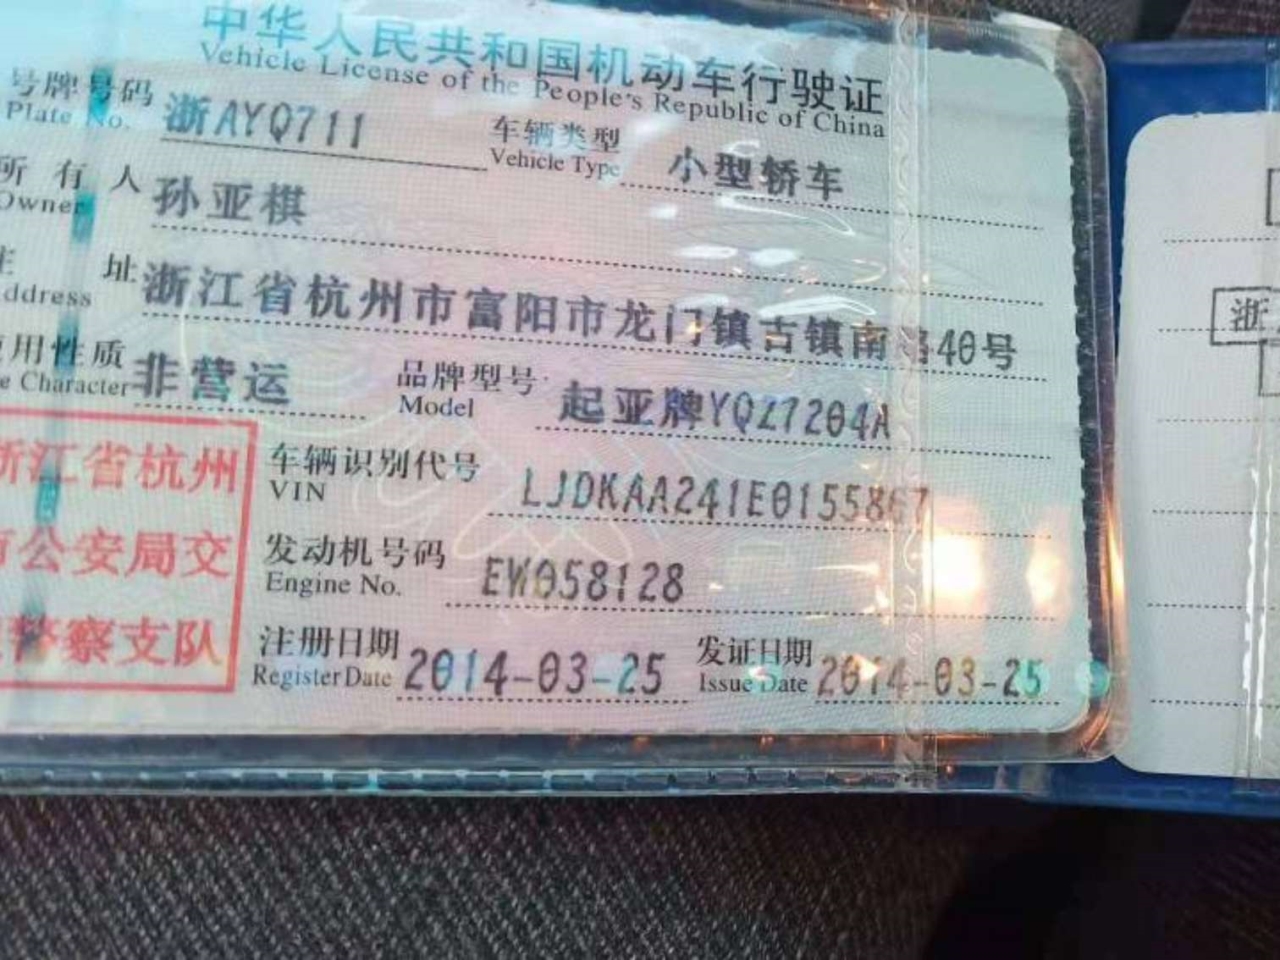 中华人民共和国机动车行驶证
Vehicle License of the People's Republic of China
号牌号码 浙AYQ711 车辆类型 小型轿车
Plate No. Vehicle Type
所有人 孙亚棋
Owner
址 浙江省杭州市富阳市龙门镇古镇南 40号
ddress
用性质 非营运 品牌型号 起亚牌YQZ7204A
e Character Model
浙江省杭州
公安局交
警察支队
车辆识别代号 LJDKAA241E0155867
VIN
发动机号码 EW058128
Engine No.
注册日期 2014-03-25 发证日期 2014-03-25
Register Date Issue Date
浙